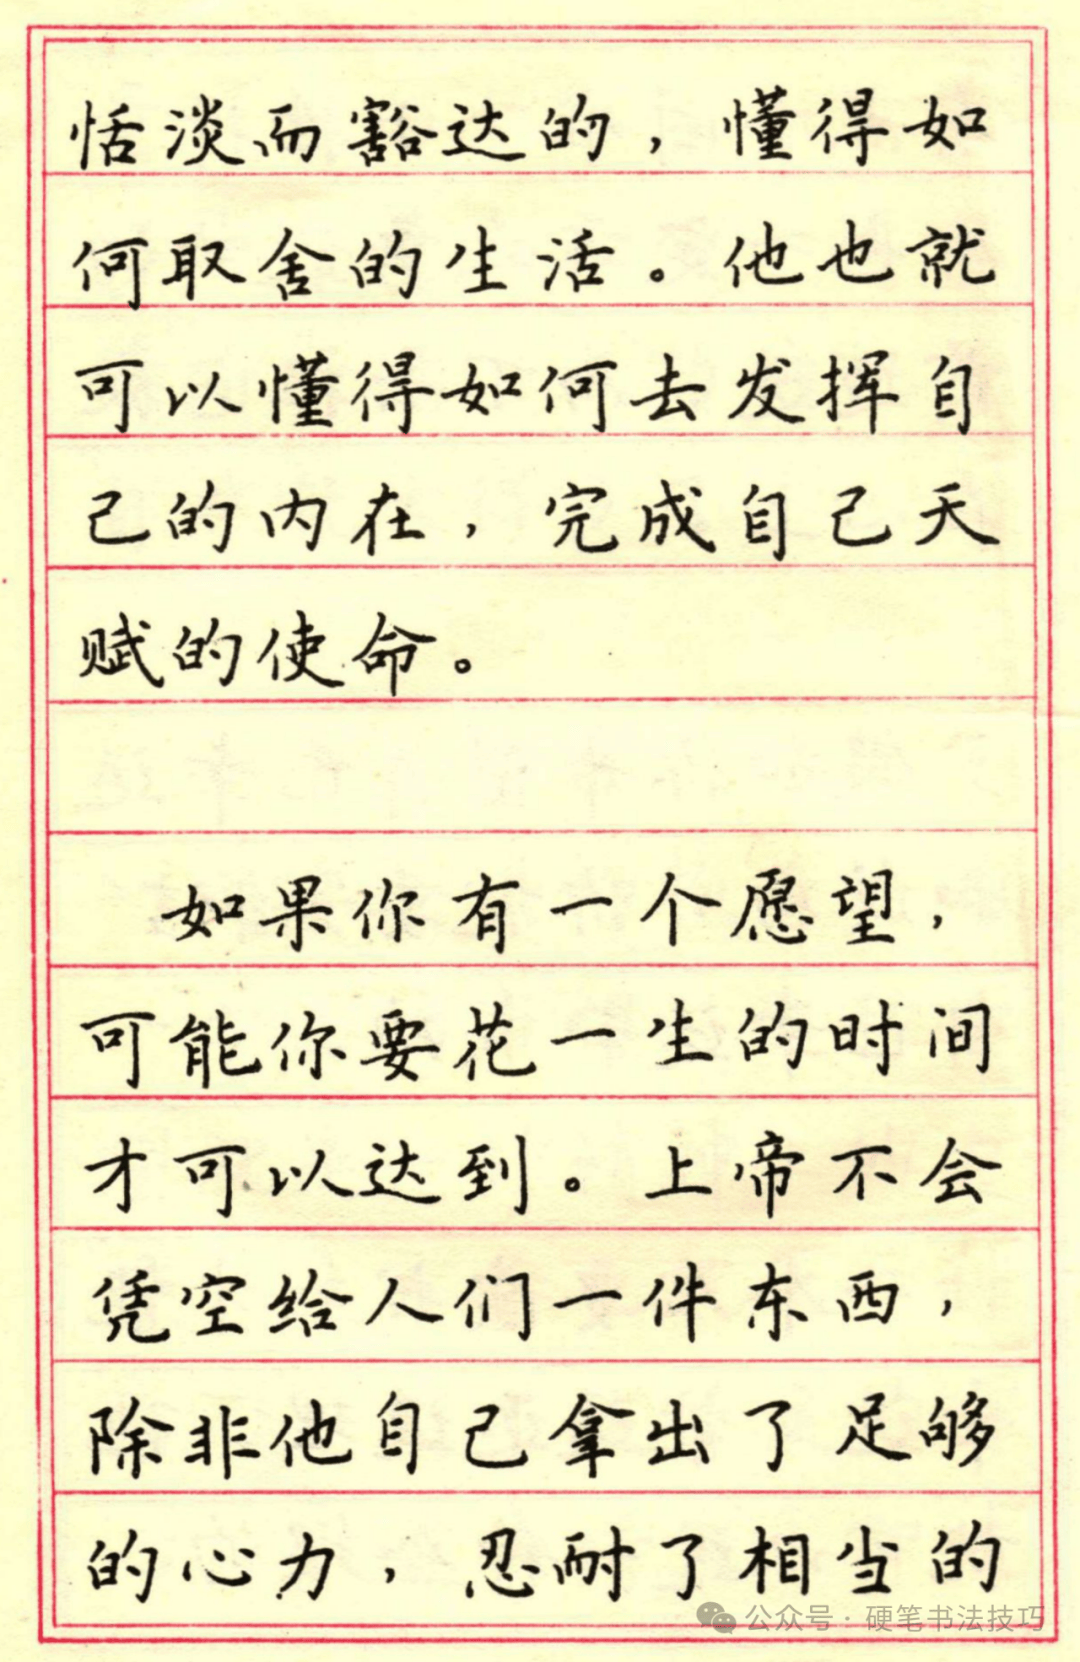 恬淡而豁达的，懂得如
何取舍的生活。他也就
可以懂得如何去发挥自
己的内在，完成自己天
赋的使命。
如果你有一个愿望，
可能你要花一生的时间
才可以达到。上帝不会
凭空给人们一件东西，
除非他自己拿出了足够
的心力，忍耐了相当的
公众号·硬笔书法技巧